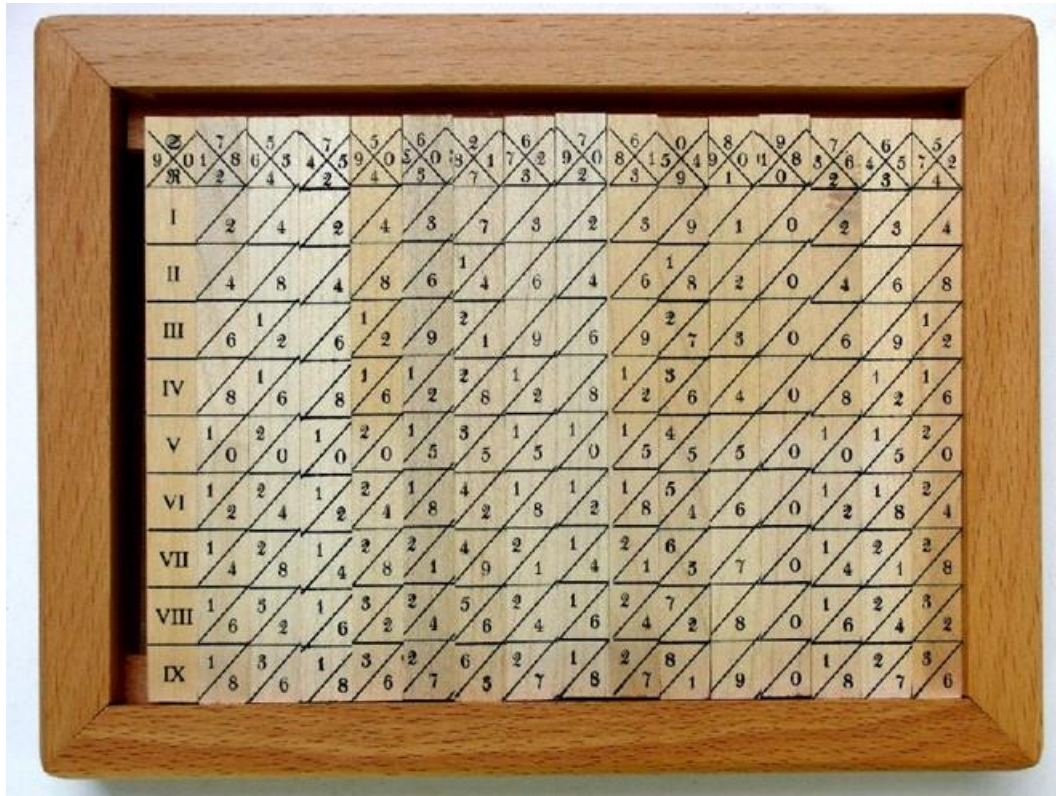 7 5 7 5 6 2 6 7 6 0 8 9 7 6 5
9 0 1 8 6 3 4 5 9 0 5 0 8 1 7 2 9 0 8 1 5 4 9 0 1 8 3 6 4 5 7 2
2 4 2 4 3 7 3 2 3 9 1 0 2 3 4
I 2 4 2 4 3 7 3 2 3 9 1 0 2 3 4
II 4 8 4 8 6 1/4 6 4 6 1/8 2 0 4 6 8
III 6 1/2 6 1/2 9 2/1 9 6 9 2/7 3 0 6 9 1/2
IV 8 1/6 8 1/6 1/2 2/8 1/2 8 1/2 3/6 4 0 8 1/2 1/6
V 1/0 2/0 1/0 2/0 1/5 3/5 1/5 1/0 1/5 4/5 5 0 1/0 1/5 2/0
VI 1/2 2/4 1/2 2/4 1/8 4/2 1/8 1/2 1/8 5/4 6 0 1/2 1/8 2/4
VII 1/4 2/8 1/4 2/8 2/1 4/9 2/1 1/4 2/1 6/3 7 0 1/4 2/1 2/8
VIII 1/6 3/2 1/6 3/2 2/4 5/6 2/4 1/6 2/4 7/2 8 0 1/6 2/4 3/2
IX 1/8 3/6 1/8 3/6 2/7 6/3 2/7 1/8 2/7 8/1 9 0 1/8 2/7 3/6